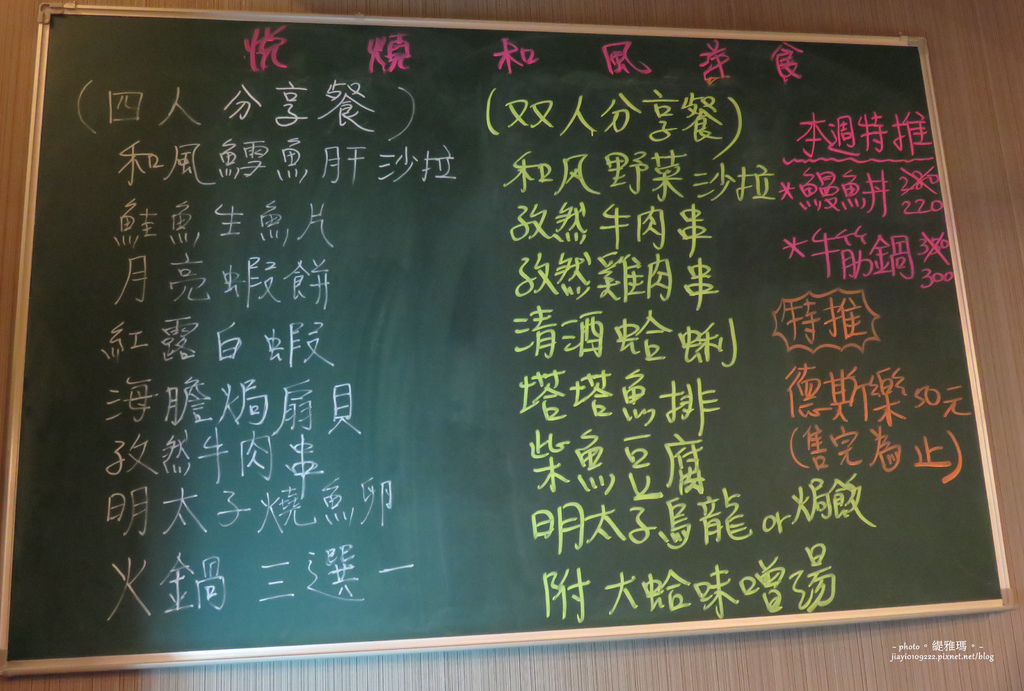 悅煩和風洋食
(四人分享餐)
和風鱈魚肝沙拉
鮭魚生魚片
月亮蝦餅
紅露白蝦
海膽焗扇貝
孜然牛肉串
明太子燒魚卵
火鍋三選一
(双人分享餐)
和风野菜沙拉
孜然牛肉串
孜然雞肉串
清酒蛤蜊
塔塔魚排
柴魚豆腐
明太子烏龍or焗飯
附大蛤味噌湯
本週特推
*鰻魚丼 280
220
*牛筋鍋 340
300
特推
德斯樂50元
(售完為止)
- photo。緹雅瑪。-
jiayi0109222.pixnet.net/blog